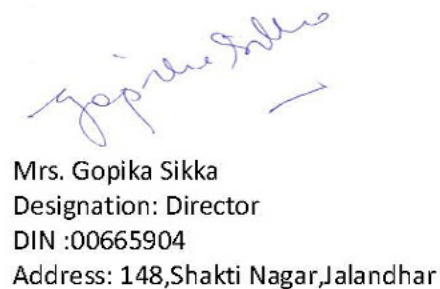 Gopika Sikka
Mrs. Gopika Sikka
Designation: Director
DIN :00665904
Address: 148,Shakti Nagar,Jalandhar